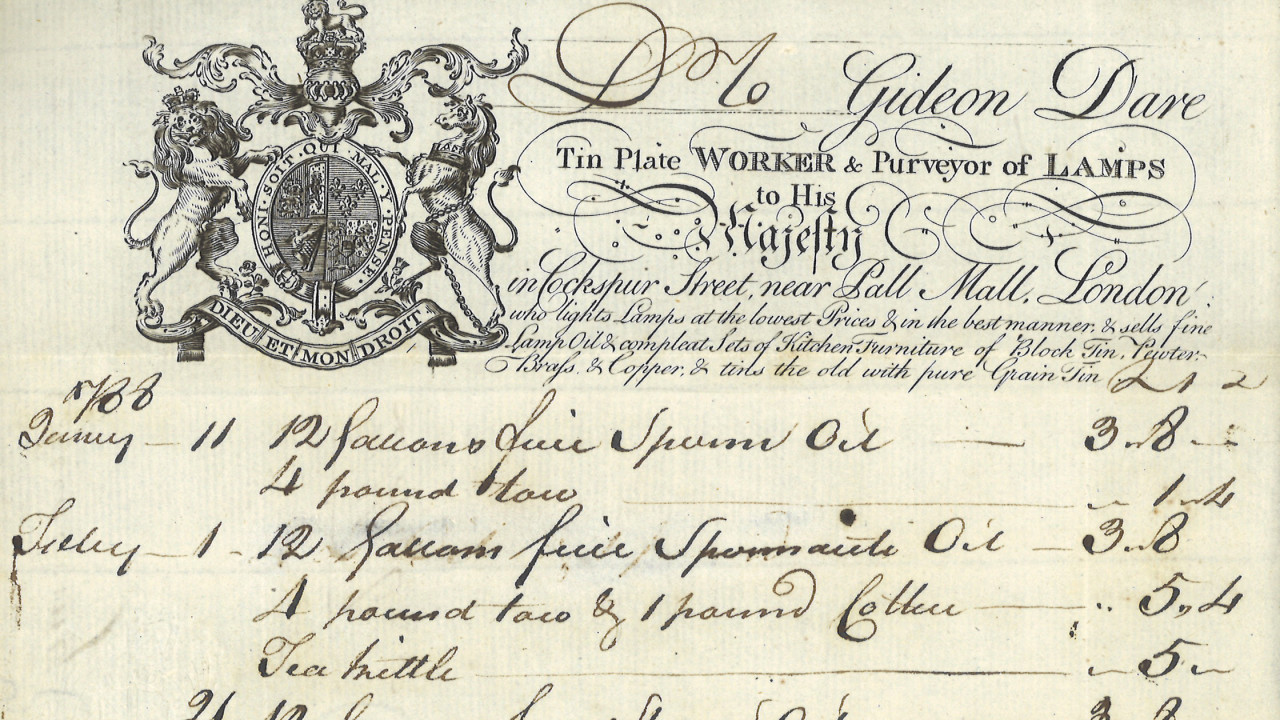 Dr to Gideon Dare
Tin Plate WORKER & Purveyor of LAMPS
to His
Majesty
in Cockspur Street, near Pall Mall, London
who lights Lamps at the lowest Prices & in the best manner, & sells fine
Lamp Oil & compleat Sets of Kitchen Furniture of Block Tin, Pewter
Brass, & Copper, & tins the old with pure Grain Tin
HONI·SOIT·QUI·MAL·Y·PENSE
DIEU ET MON DROIT
1788
11 12 Gallons fine Sperm Oil 3 8
4 pound tow 1 4
1 12 Gallons fine Oil 3 8
4 pound tow & 1 pound 5 4
Tea kittle 5
21 12